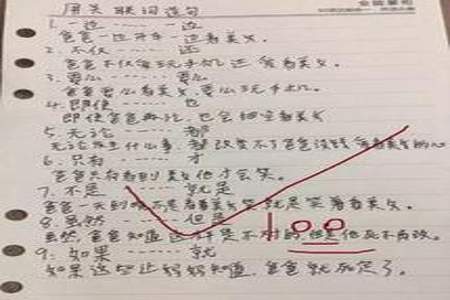 用关联词造句
1. 一边 …… 一边
爸爸一边开车一边看美女。
2. 不仅 …… 还
爸爸不仅爱玩手机还爱看美女。
3. 要么 …… 要么
爸爸要么看美女,要么玩手机。
4. 即使 …… 也
即使爸爸 也会 看美女
5. 无论 …… 都
无论发生什么事,都改变不了爸爸 爱看美女的心
6. 只有 …… 才
爸爸只有看到美女他才会笑。
7. 不是 …… 就是
爸爸一天到晚不是看美女笑就是笑着看美女。
8. 虽然 …… 但是
虽然,爸爸知道这样是不对的,但是他死不肯改。
9. 如果 …… 就
如果这些让妈妈知道,爸爸就死定了。
100